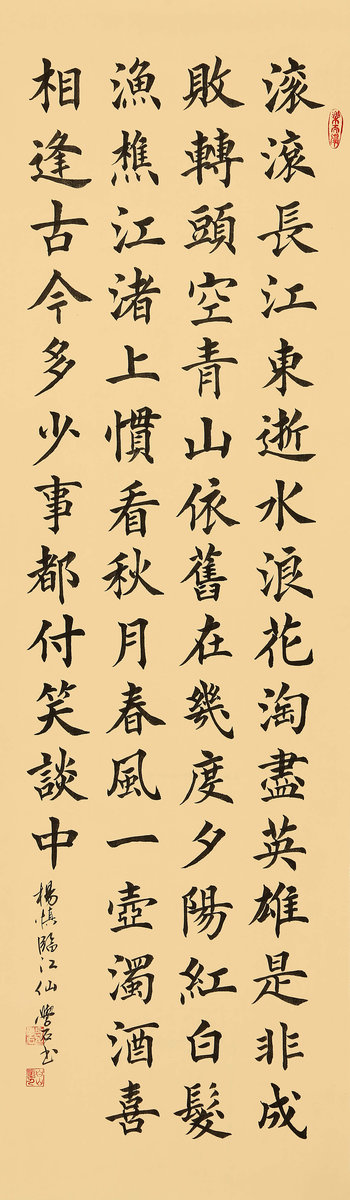 滚滚長江東逝水浪花淘盡英雄是非成
敗轉頭空青山依舊在幾度夕陽紅白髮
漁樵江渚上慣看秋月春風一壺濁酒喜
相逢古今多少事都付笑談中
楊慎臨江仙